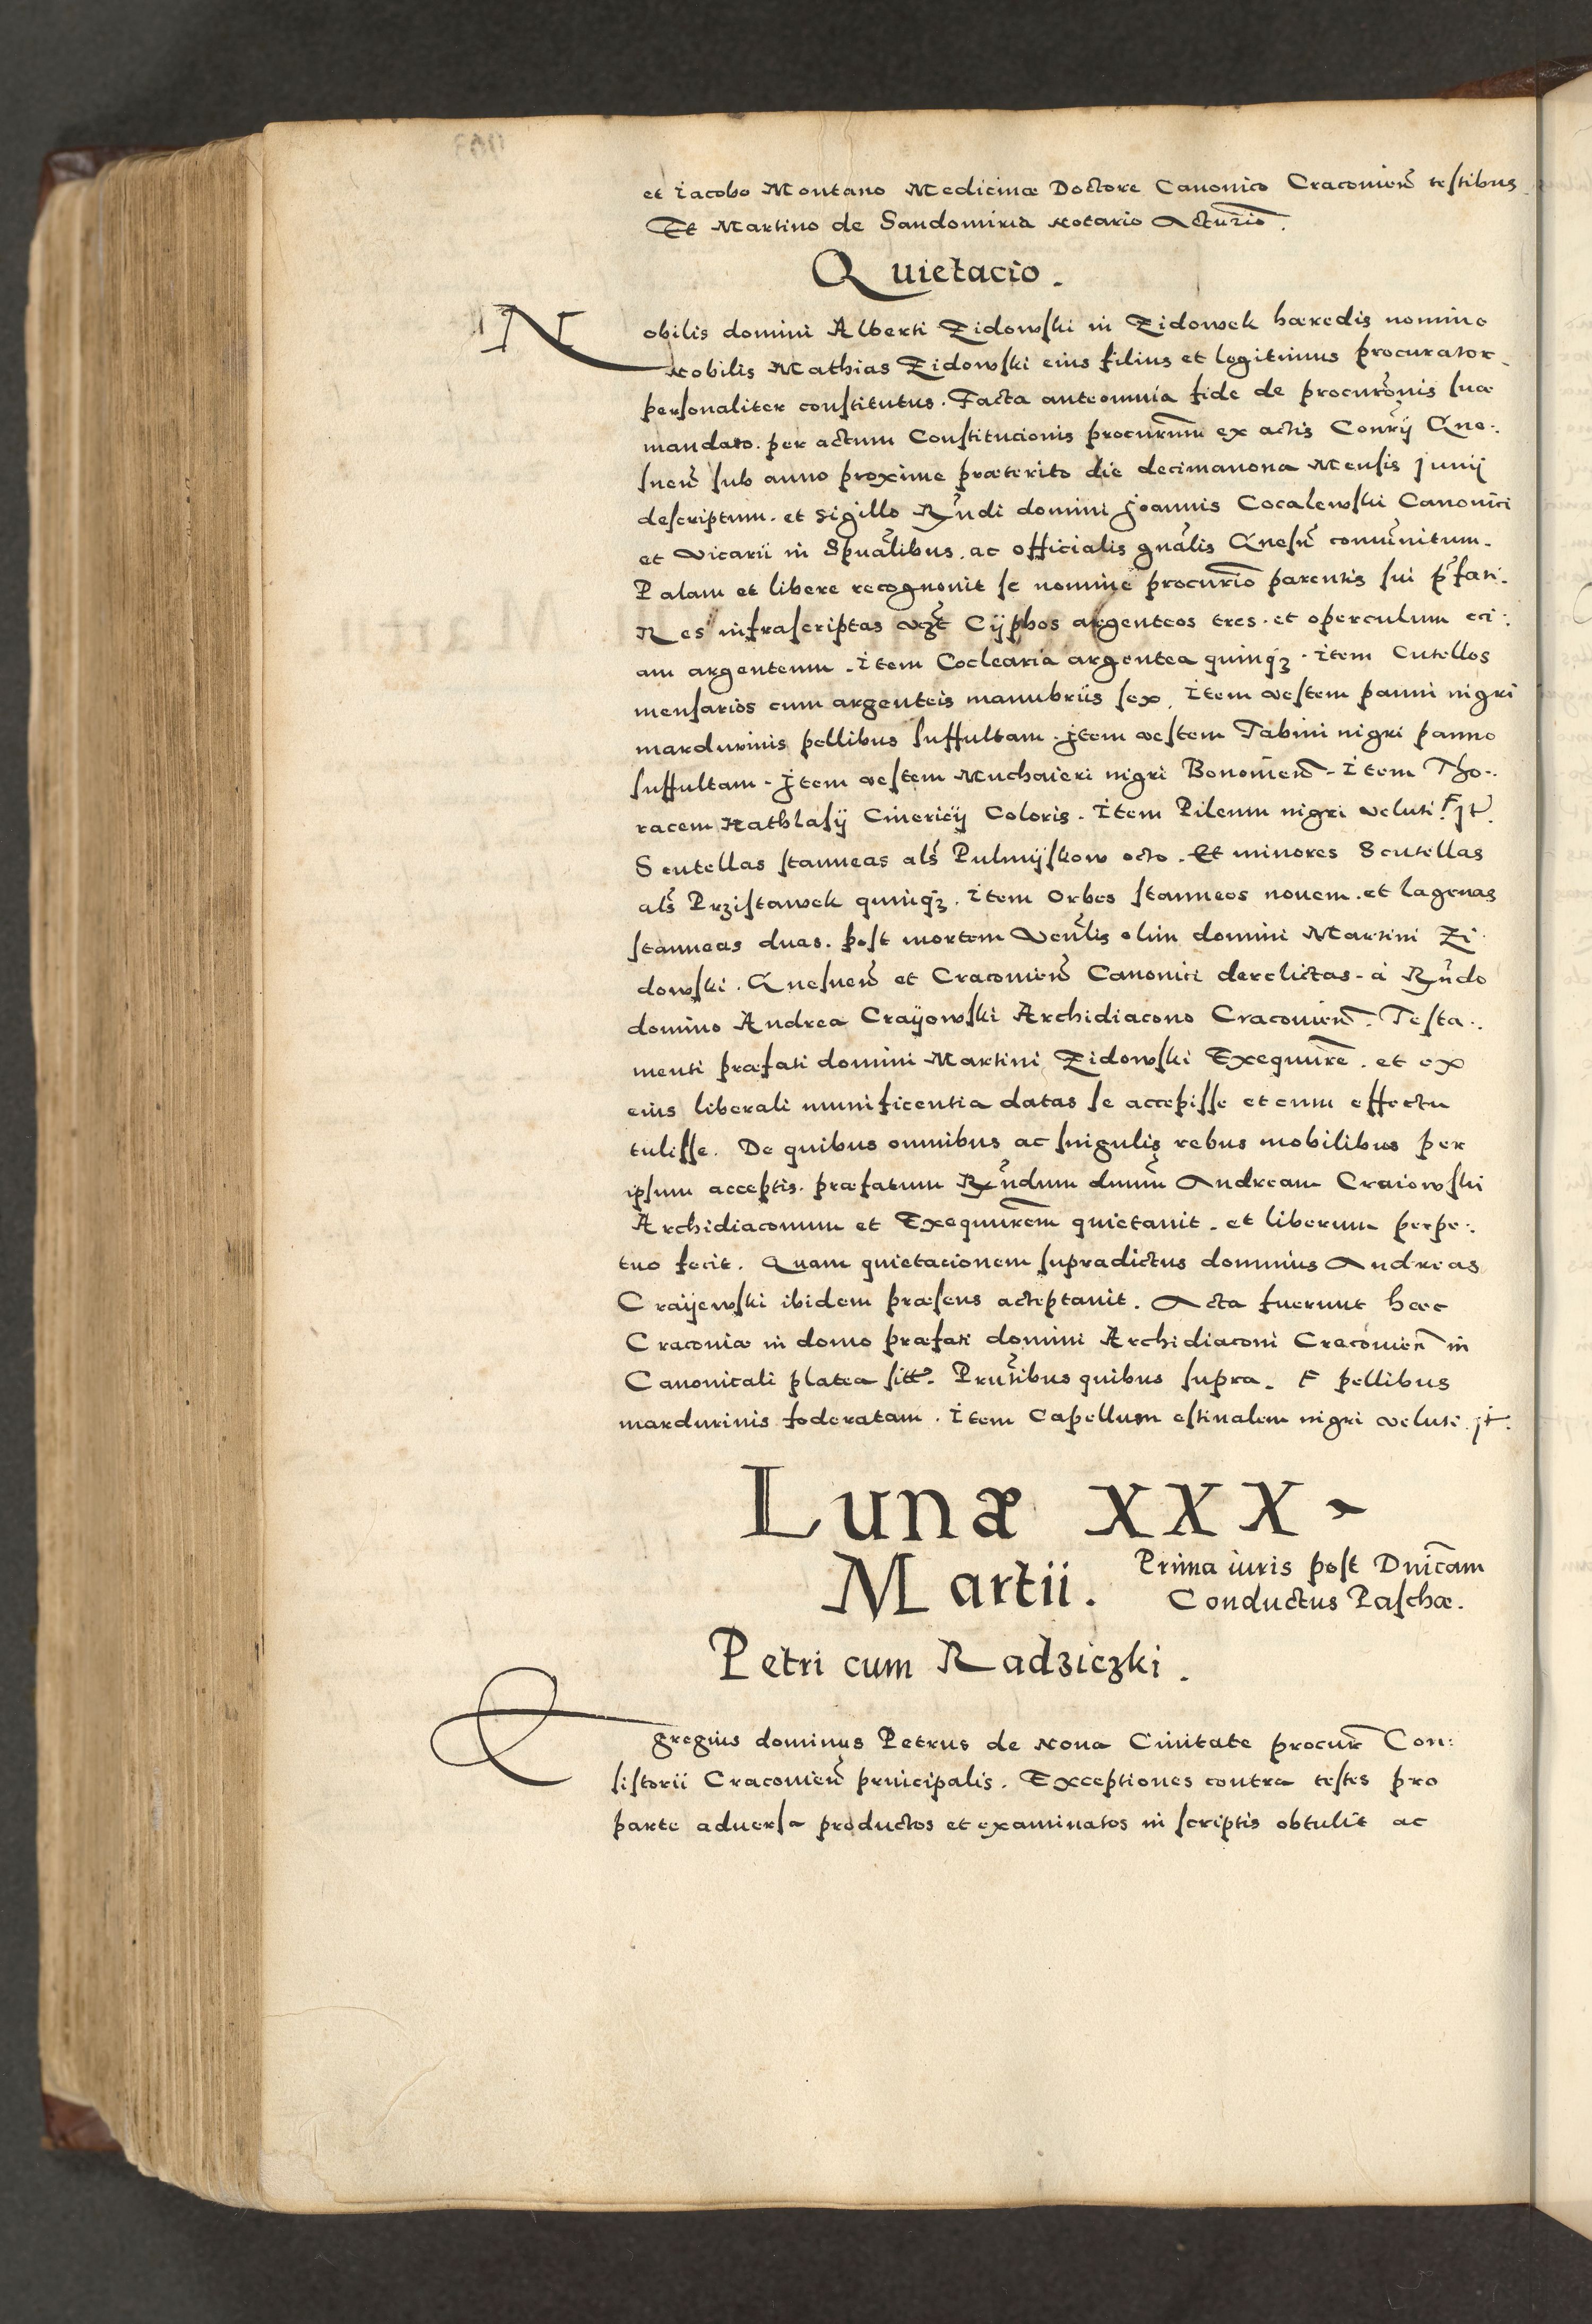 et Iacobo Montano Medicinæ Doctore Canonico Cracovieñ testibus
Et Martino de Sandomiria Notario Actuario.
Quietacio.
Nobilis domini Alberti Zidowski in Zidowek hæredis nomine
Nobilis Mathias Zidowski eius filius et legitimus procurator
personaliter constitutus. Facta anteomnia fide de procuronis suæ
mandato. per actum Constitucionis procurm ex actis Conrÿ Gne-.
sneñ sub anno proxime præterito die decimanona Mensis Junij
descriptum. et sigillo Rndi domini Joannis Cocalewski Canonici
et vicarii in Spualibus. ac officialis gnalis Gnesñ comunitum.
Palam et libere recognovit se nomine procurio parentis sui pfati.
Res infrascriptas vzt Cijphos argenteos tres. et operculum eci:
am argenteum. Item Coclearia argentea quinqz. Item Cutellos
mensarios cum argenteis manubriis sex. Item vestem panni nigri
mardurinis pellibus suffultam. Item vestem Tabini nigri panno
suffultam. Item vestem Muchaieri nigri Bononieñ. Item Tho-.
racem Hathlasij Cinericij Coloris. Item Pileum nigri veluti. F It.
Scutellas stanneas als Pulmijskow octo. Et minores Scutellas
als Przistawek quinqz. Item Orbes stanneos novem. et lagenas
stanneas duas. post mortem Venlis olim domini Martini Zi-
dowski. Gnesneñ et Cracovieñ Canonici derelictas. a Rndo
domino Andrea Crayowski Archidiacono Cracovieñ. Testa-.
menti præfati domini Martini Zidowski Exequure. et ex
eius liberali munificentia datas se accepisse et cum effectu
tulisse. De quibus omnibus ac singulis rebus mobilibus per
ipsum acceptis. præfatum Rndum dnum Andream Craiowski
Archidiaconum et Exequurem quietavit. et liberum perpe:
tuo fecit. Quam quietacionem supradictus dominus Andreas
Craijewski ibidem præsens acceptavit. Acta fuerunt hæc
Cracoviæ in domo præfati domini Archidiaconi Cracovieñ in
Canonicali platea sitt. Prntibus quibus supra. F pellibus
mardurinis foderatam. Item Capellum estivalem nigri veluti. It.
Lunæ XXX
Martii. Prima iuris post Dnicam
Conductus Paschæ.
Petri cum Radziczki.
Egregius dominus Petrus de Nova Civitate procur Con:
sistorii Cracovieñ principalis. Exceptiones contra testes pro
parte adversa productos et examinatos in scriptis obtulit ac